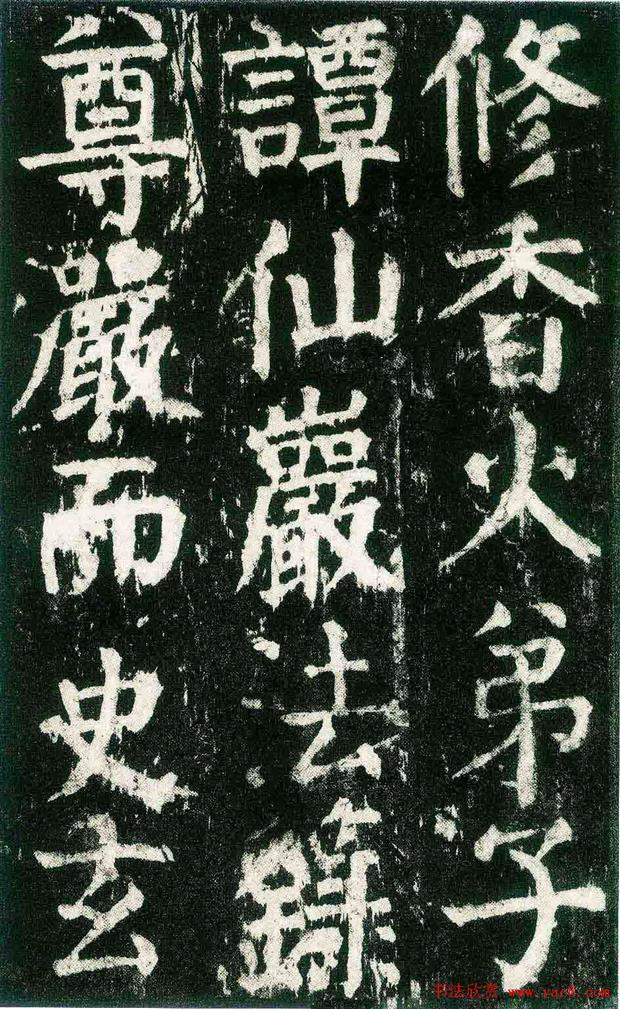 修香火弟子
譚仙巖去録
尊嚴而史玄
书法欣赏 www.yac8.com